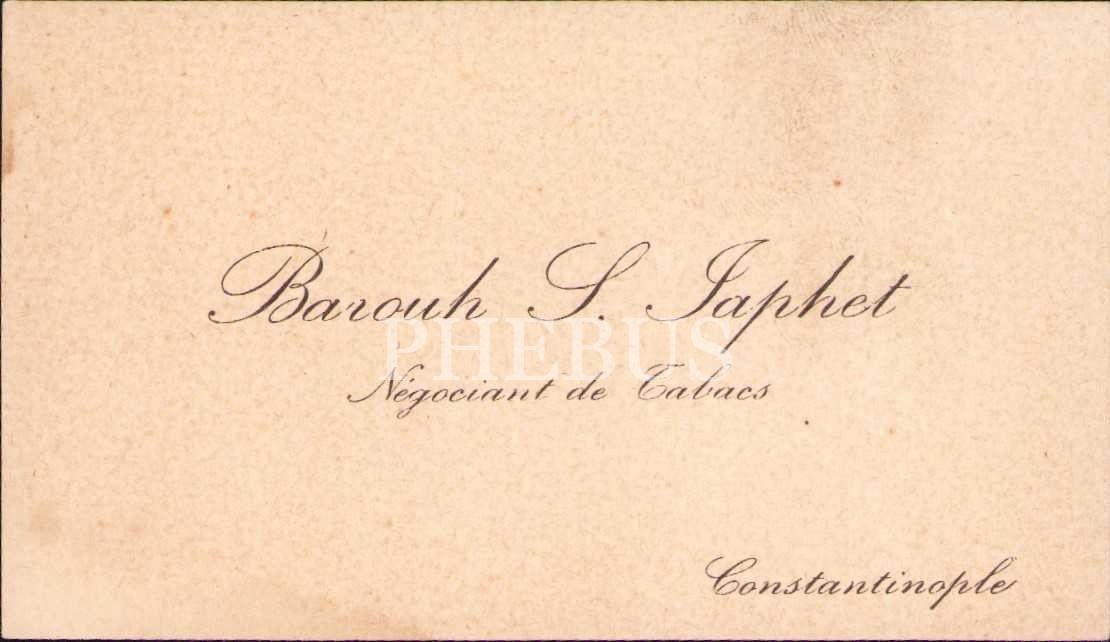 Barouh S. Japhet
PHEBUS
Négociant de Tabacs
Constantinople